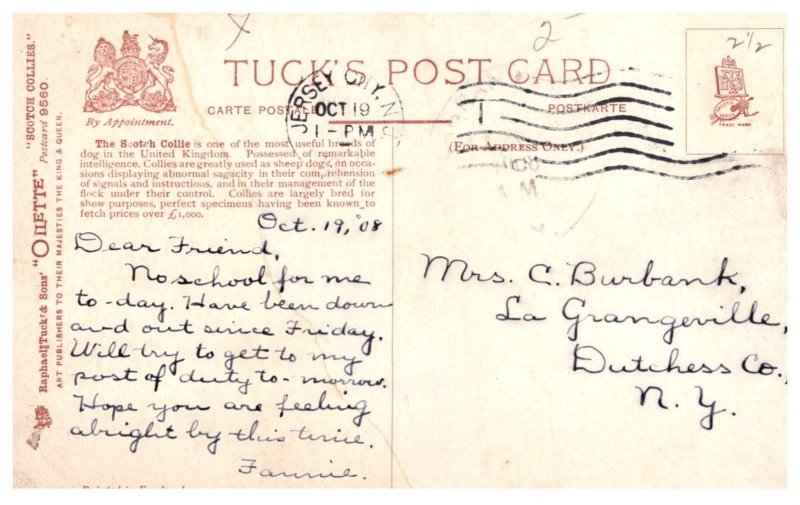 "SCOTCH COLLIES."
Raphael Tuck & Sons' "OILETTE" Postcard 9560.
ART PUBLISHERS TO THEIR MAJESTIES THE KING & QUEEN.
By Appointment.
TUCK'S POST CARD
CARTE POSTALE
POSTKARTE
(FOR ADDRESS ONLY.)
JERSEY CITY, N.
OCT 19
1-PM
2-
2 1/2
TRADE MARK
The Scotch Collie is one of the most useful breeds of
dog in the United Kingdom. Possessed of remarkable
intelligence, Collies are greatly used as sheep dogs, on occa-
sions displaying abnormal sagacity in their comprehension
of signals and instructions, and in their management of the
flock under their control. Collies are largely bred for
show purposes, perfect specimens having been known to
fetch prices over £1,000.
Oct. 19, '08
Dear Friend,
No school for me
to-day. Have been down
and out since Friday.
Will try to get to my
post of duty to-morrow.
Hope you are feeling
alright by this time.
Fannie.
Mrs. C. Burbank,
La Grangeville,
Dutchess Co.,
N. Y.